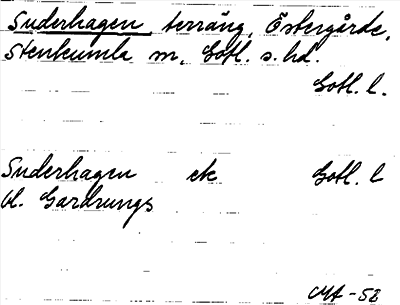 Suderhagen terräng, Östergårde,
Stenkumla sn, Gotl. s. hd.
Gotl. l.
Suderhagen ek Gotl. l
bl. Gardrungs
MA - 52